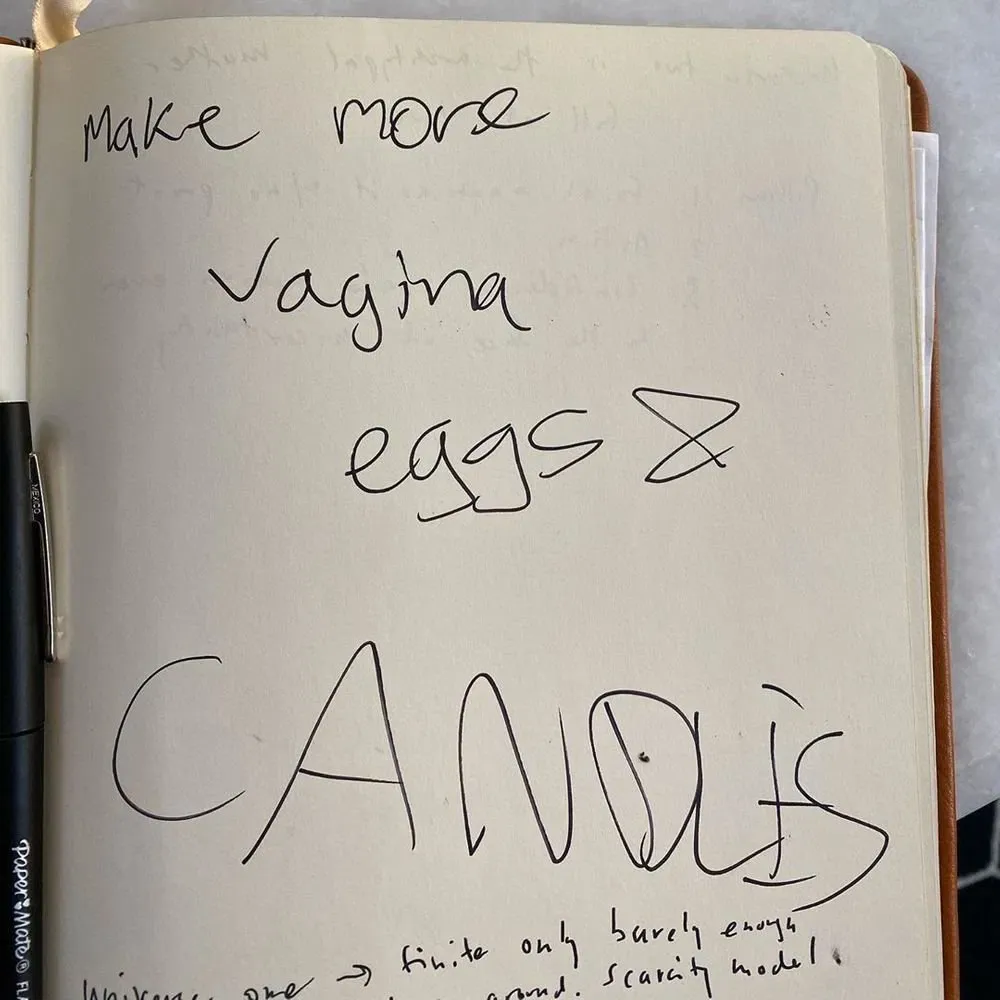 Make more
vagina
eggs &
CANDLES
Universe one → finite only barely enough
around. scarcity model.
MEXICO
Paper Mate® FLA